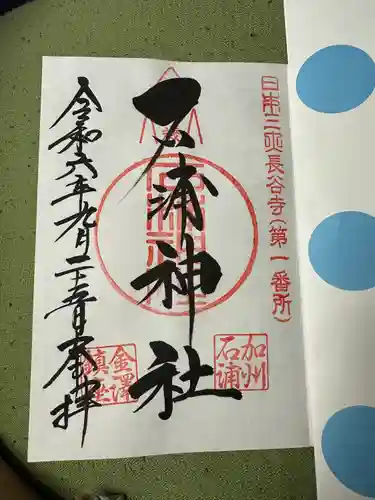 日本三大長谷寺(第一番所)
加州
石浦
石浦神社
金澤
鎮座
令和六年九月二十三日奉拝